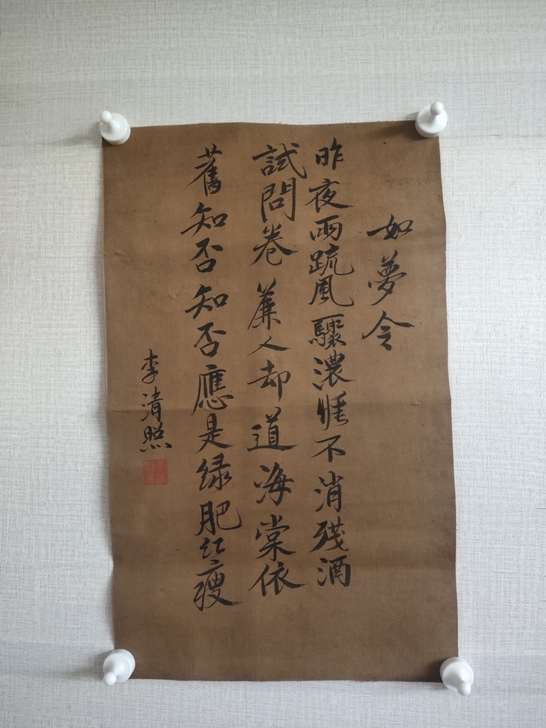 如夢令
昨夜雨疏風驟濃睡不消殘酒
試問卷簾人却道海棠依
舊知否知否應是绿肥红瘦
李清照